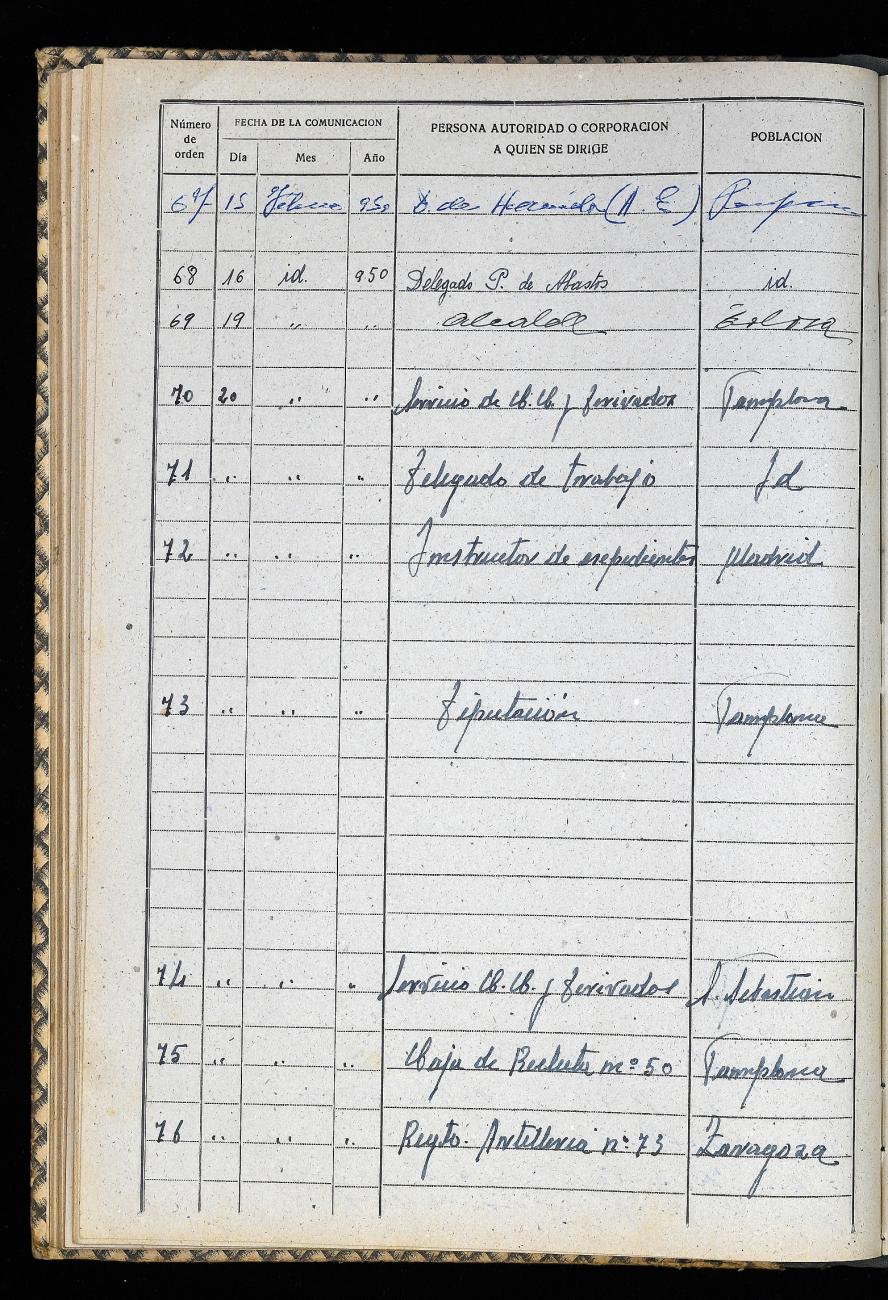 Número de orden FECHA DE LA COMUNICACION PERSONA AUTORIDAD O CORPORACION A QUIEN SE DIRIGE POBLACION
Día Mes Año
67 15 Febrero 950 D. de Hacienda (A. E)
68 16 id. 950 Delegado P. de Abastos id.
69 19 " " Alcalde
70 20 " " Servicio de C.C. y Derivados Pamplona
71 " " " Delegado de trabajo Id
72 " " " Instructor de expedientes Madrid
73 " " " Diputación Pamplona
74 " " " Servicio C.C. y Derivados S. Sebastian
75 " " " Caja de Recluta nº 50 Pamplona
76 " " " Regto. Artilleria nº 73 Zaragoza